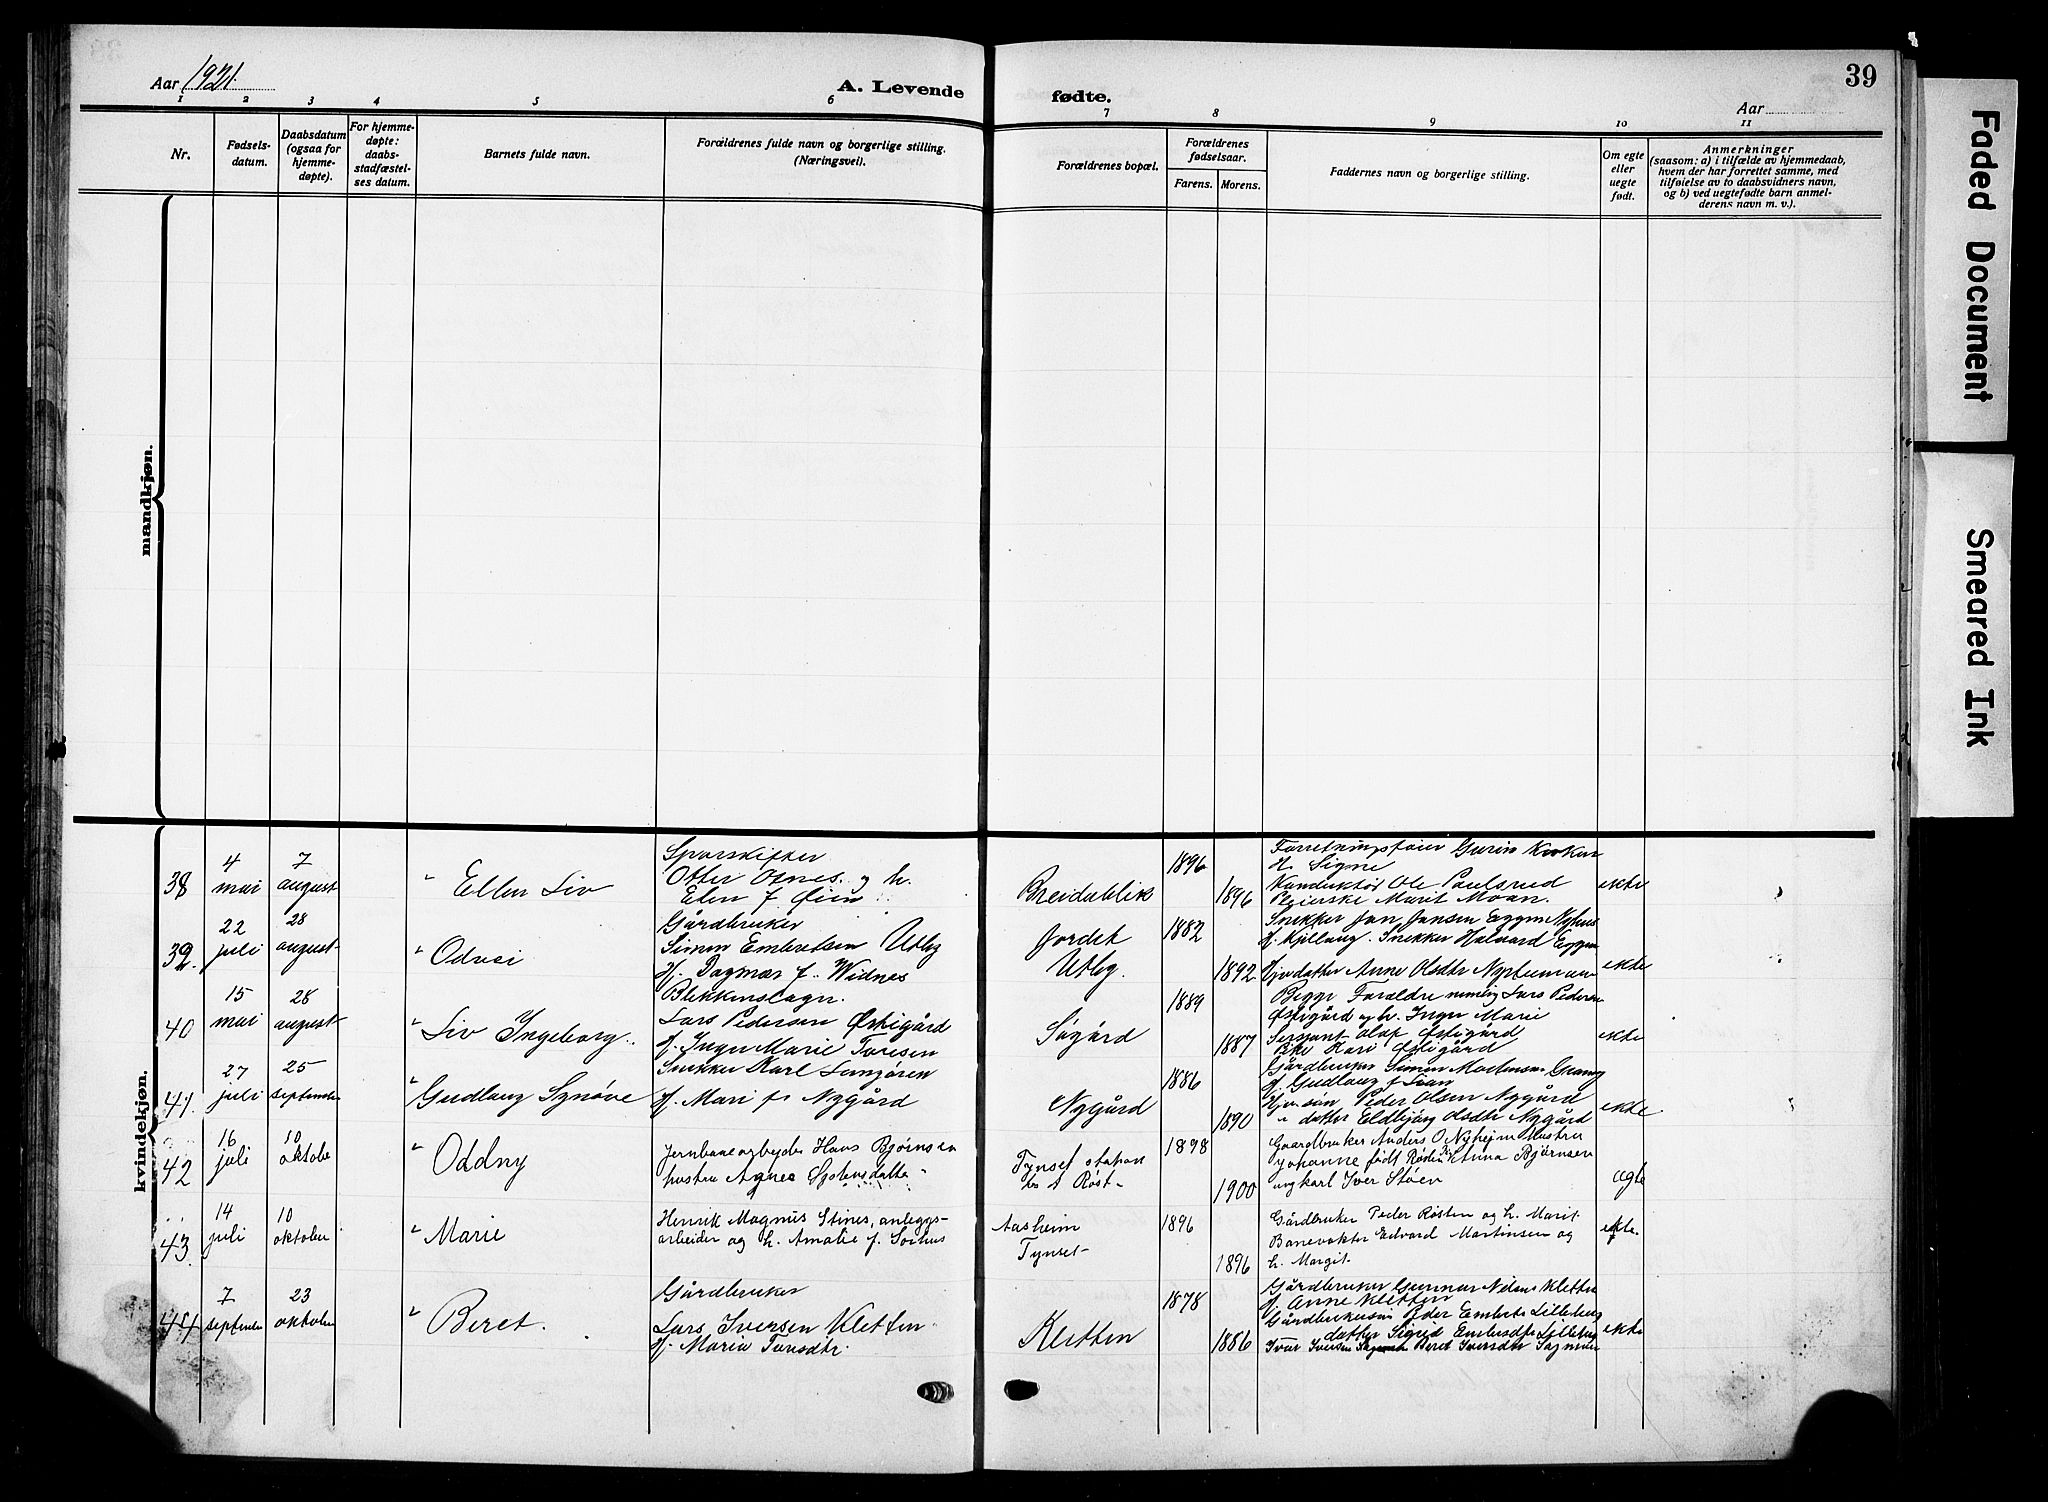 Aar 1921.
A. Levende fødte.
39
Aar
1 2 3 4 5 6 7 8 9 10 11
Nr.
Fødsels-
datum.
Daabsdatum
(ogsaa for
hjemme-
døpte).
For hjemme-
døpte:
daabs-
stadfæstel-
ses datum.
Barnets fulde navn.
Forældrenes fulde navn og borgerlige stilling.
(Næringsvei).
Forældrenes bopæl.
Forældrenes
fødselsaar.
Farens. Morens.
Faddernes navn og borgerlige stilling.
Om egte
eller
uegte
født.
Anmerkninger
(saasom: a) i tilfælde av hjemmedaab,
hvem der har forrettet samme, med
tilføielse av to daabsvidners navn,
og b) ved uegtefødte barn anmel-
derens navn m. v.).
mandkjøn.
kvindekjøn.
38
4
mai
7
august
Ellen Liv
Otter Osnes og h.
f. Øien
Breidablik
1896
1896
H. Signe
Konduktør Ole Paulsrud
Pleierske Marit Moan.
ekte
39.
22
juli
28
august
Odvei
Gårdbruker
Simen Embretsen Utby
H. Dagmar f. Widnes
Jordet
Utby.
1882
1892
Snekker Jon Jonsen Eggen
Snekker Halvard Eggen
Anne Olsdtr
ekte
40
15
mai
28
august
Liv Ingeborg
Blikkenslager.
Lars Pedersen Østigård
H. Inger Marie Toresen
Søgård
1889
1887
Begge Foræ​ldre nemlig Lars Pedersen
Østigård og h. Inger Marie
Sersjant Olaf Østigård
Pike Kari Østigård
ekte
41.
27
juli
25
september
Gudlaug Synøve
Snekker Karl
H. Mari f. Nygård
Nygård
1886
1890
Gårdbruker Simen Mortensen
H. Gudlaug f.
Peder Olsen Nygård
datter Eldbjørg Olsdtr Nygård
ekte
42
16
juli
10
oktober
Oddny
Jernbanearbeyder Hans Bjørnsen
hustru Agnes
Tynset station
Røst
1898
1900
Gaardbruker Anders O Nyhejm Hustru
Johanne født Røsten Anna Bjørnsen
ungkarl Iver Støen
ægte
43.
14
juli
10
oktober
Marie
Henrik Magnus Stines, anleggs-
arbeider og h. Amalie f. Sorhus
Aasheim
Tynset
1896
1896
Gårdbruker Peder Røsten og h. Marit.
Banevokter Edvard Martinsen og
h. Margit.
ekte.
44
7
september
23
oktober
Beret.
Gårdbruker
Lars Iversen Kletten
H. Maria Tønsdtr.
Kletten
1878
1886
Gårdbruker Gunnar Nilsen Kletten
H. Anne Kletten
Gårdbrukersøn Peder Embrets Lilleberg
datter Sigrid Embrdtr Lilleberg
Ivar Iversen Beret Iversdtr
ekte
Faded Document
Smeared Ink